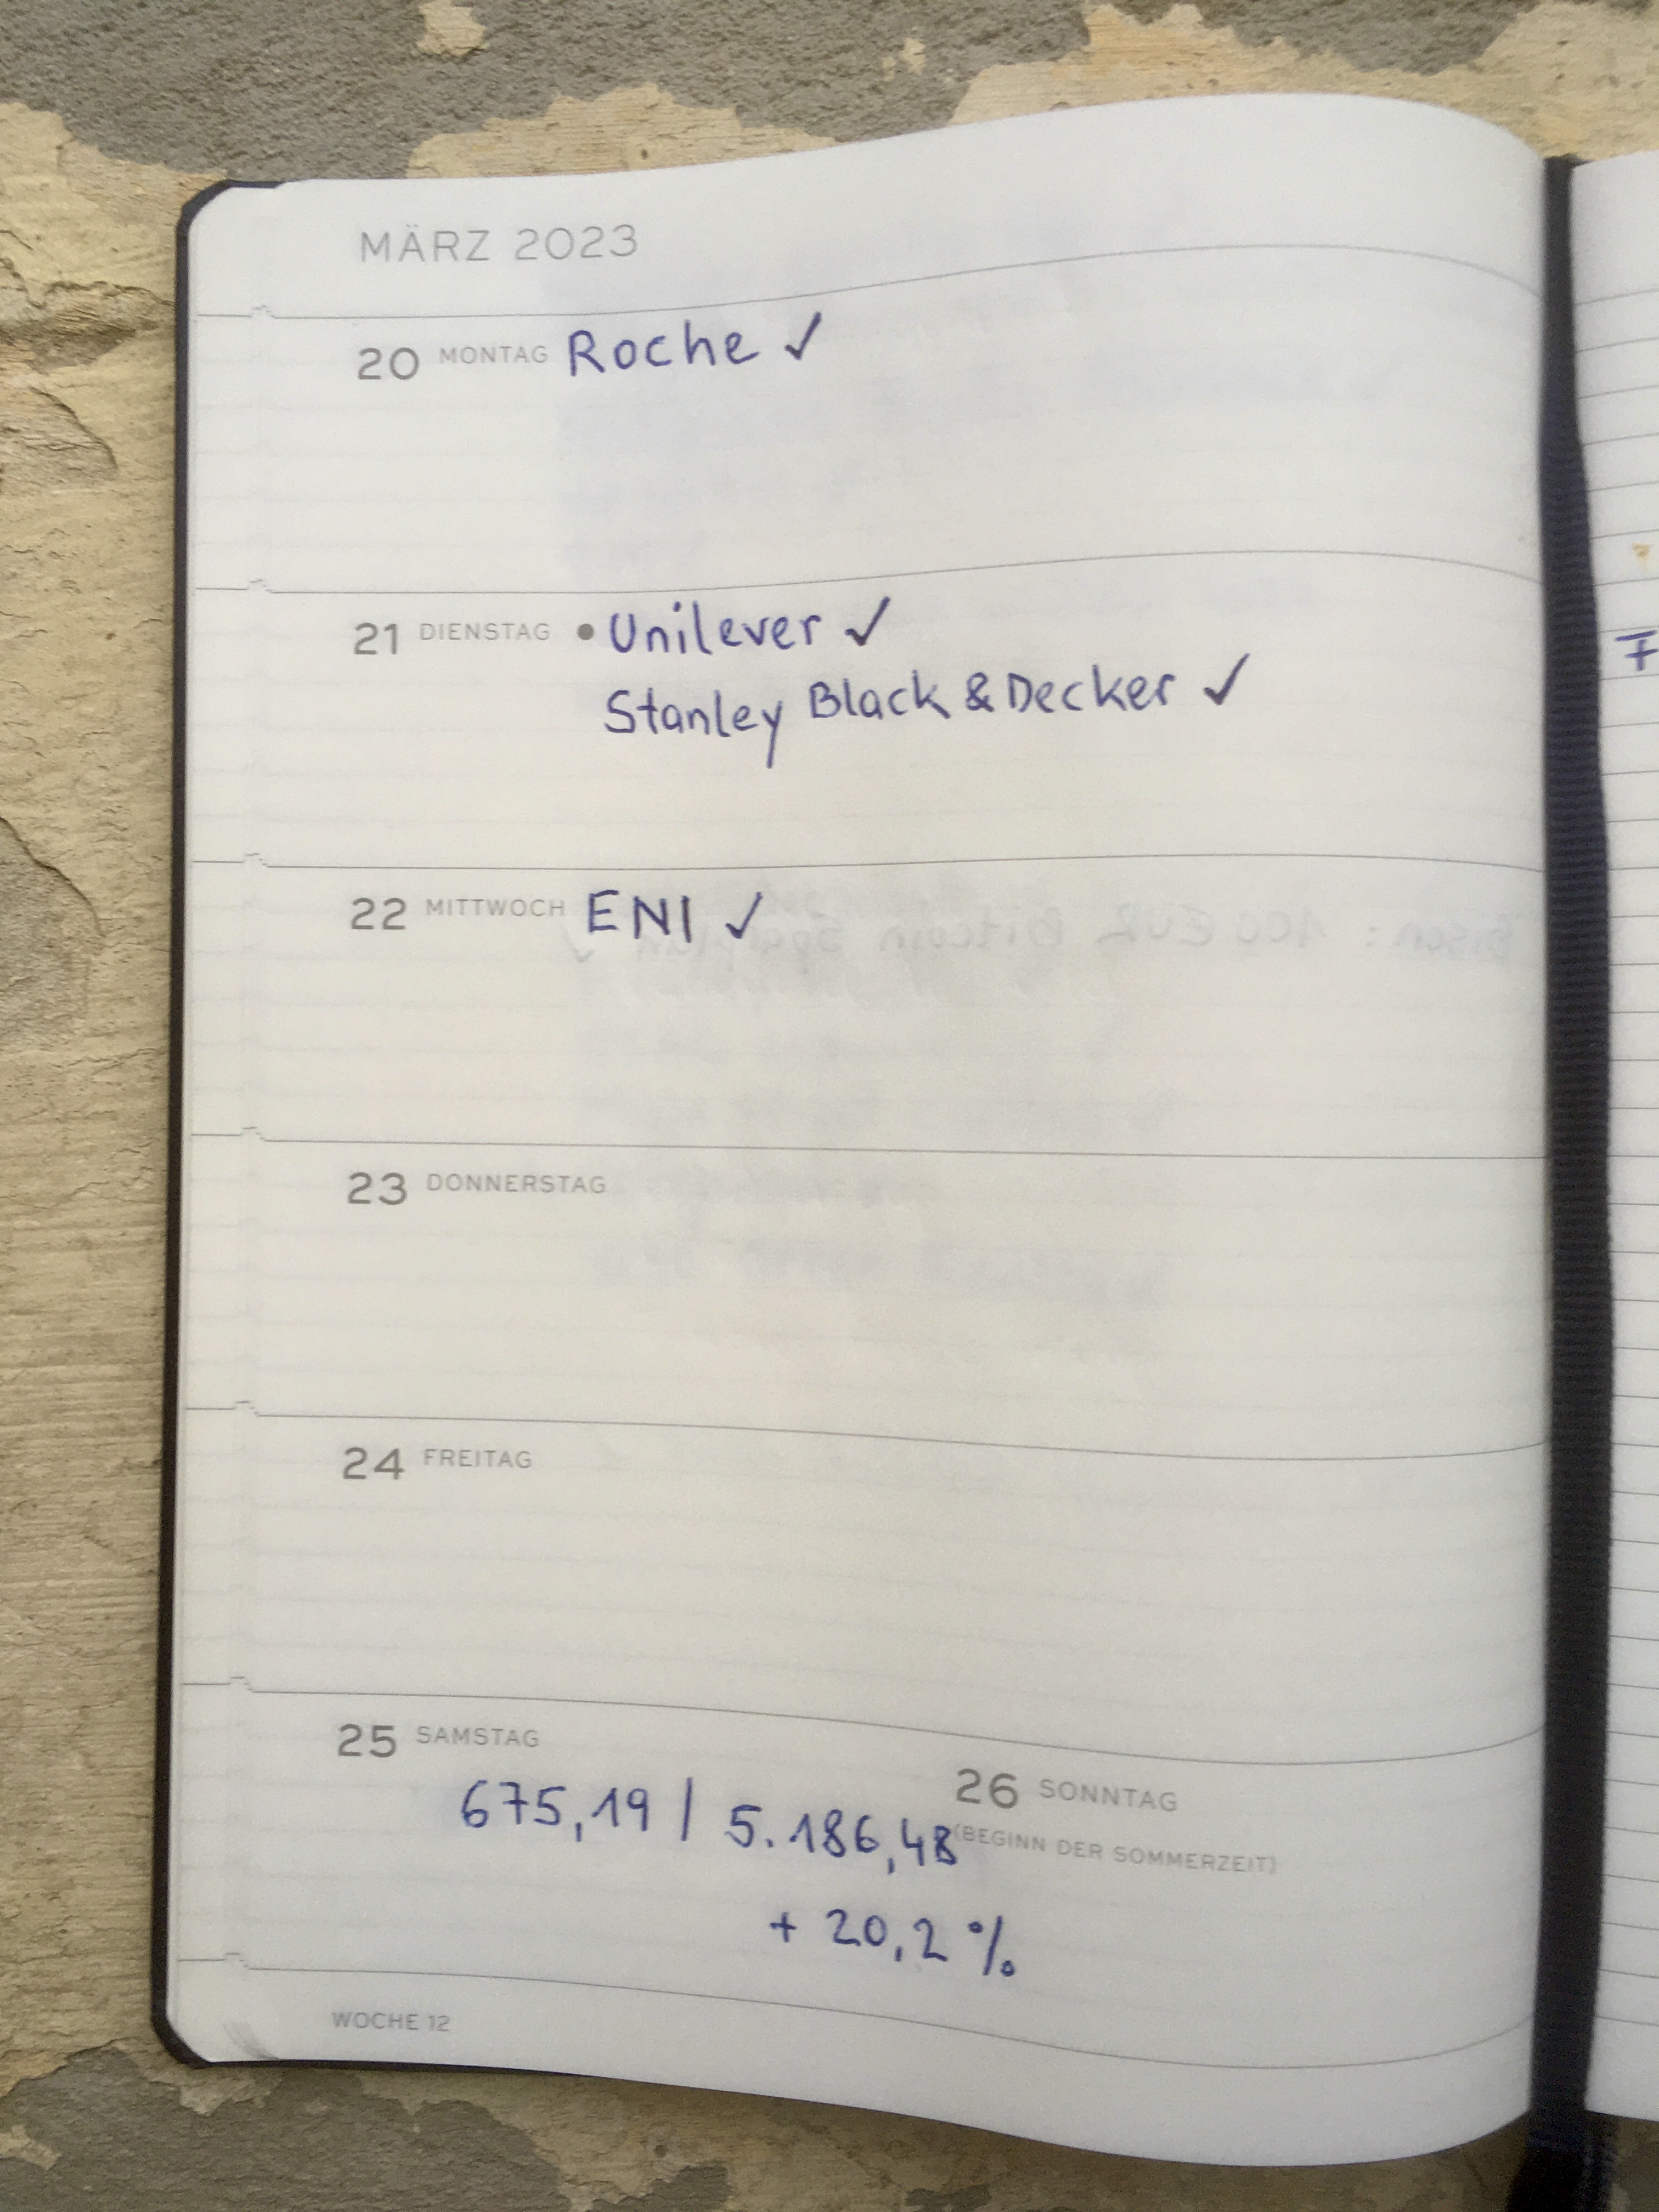 MÄRZ 2023
20 MONTAG Roche ✓
21 DIENSTAG • Unilever ✓
Stanley Black & Decker ✓
22 MITTWOCH ENI ✓
23 DONNERSTAG
24 FREITAG
25 SAMSTAG
675,19 / 5.186,48
26 SONNTAG
(BEGINN DER SOMMERZEIT)
+ 20,2 %
WOCHE 12